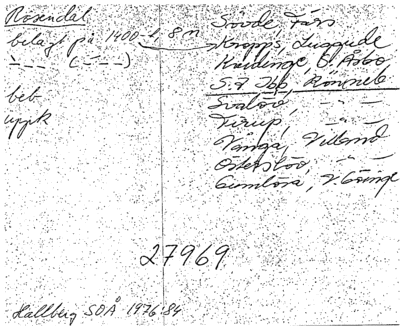 Rosendal
belagt på 1400-t, 8 n
beb
uppk
Sövde Färs
Kropp, Luggude
Källinge, Ö. Åsbo
S:t Ibb, Rönneb
Svalöv, — " —
Tirup, — " —
Vånga, Villand
Österslöv, — " —
Gumlösa, V. Göinge
27969
Hallberg SOÅ 1976:84